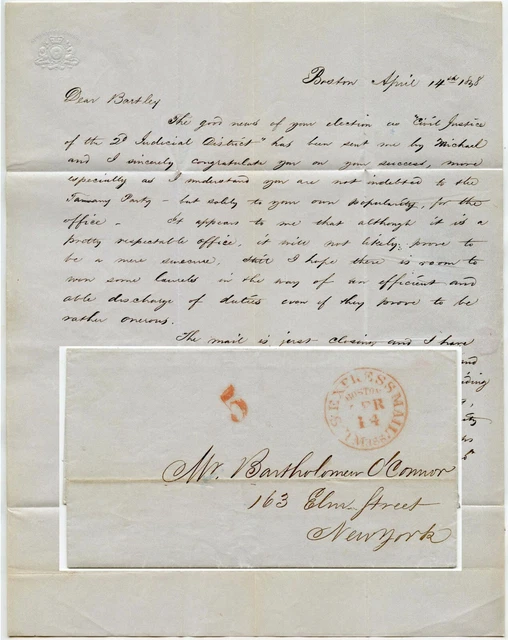 Boston April 14th 1848
Dear Bartley
The good news of your election as "Civil Justice
of the 2d Judicial District" has been sent me by Michael
and I sincerely congratulate you on your success, more
especially as I understand you are not indebted to the
Tamany Party - but solely to your own popularity, for the
office - It appears to me that although it is a
pretty respectable office, it will not likely prove to
be a mere sinecure, still I hope there is room to
win some laurels in the way of an efficient and
able discharge of duties even if they prove to be
rather onerous.
The mail is just closing and I have
5
U.S. EXPRESS MAIL
BOSTON
APR
14
Mass.
Mr. Bartholomew O'Connor
163 Elm Street
New York